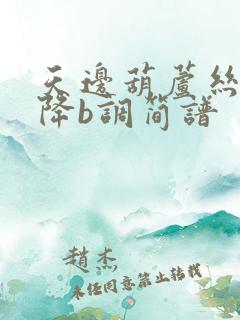 天邊葫蘆絲
降b調簡譜
趙杰
未经同意禁止转载